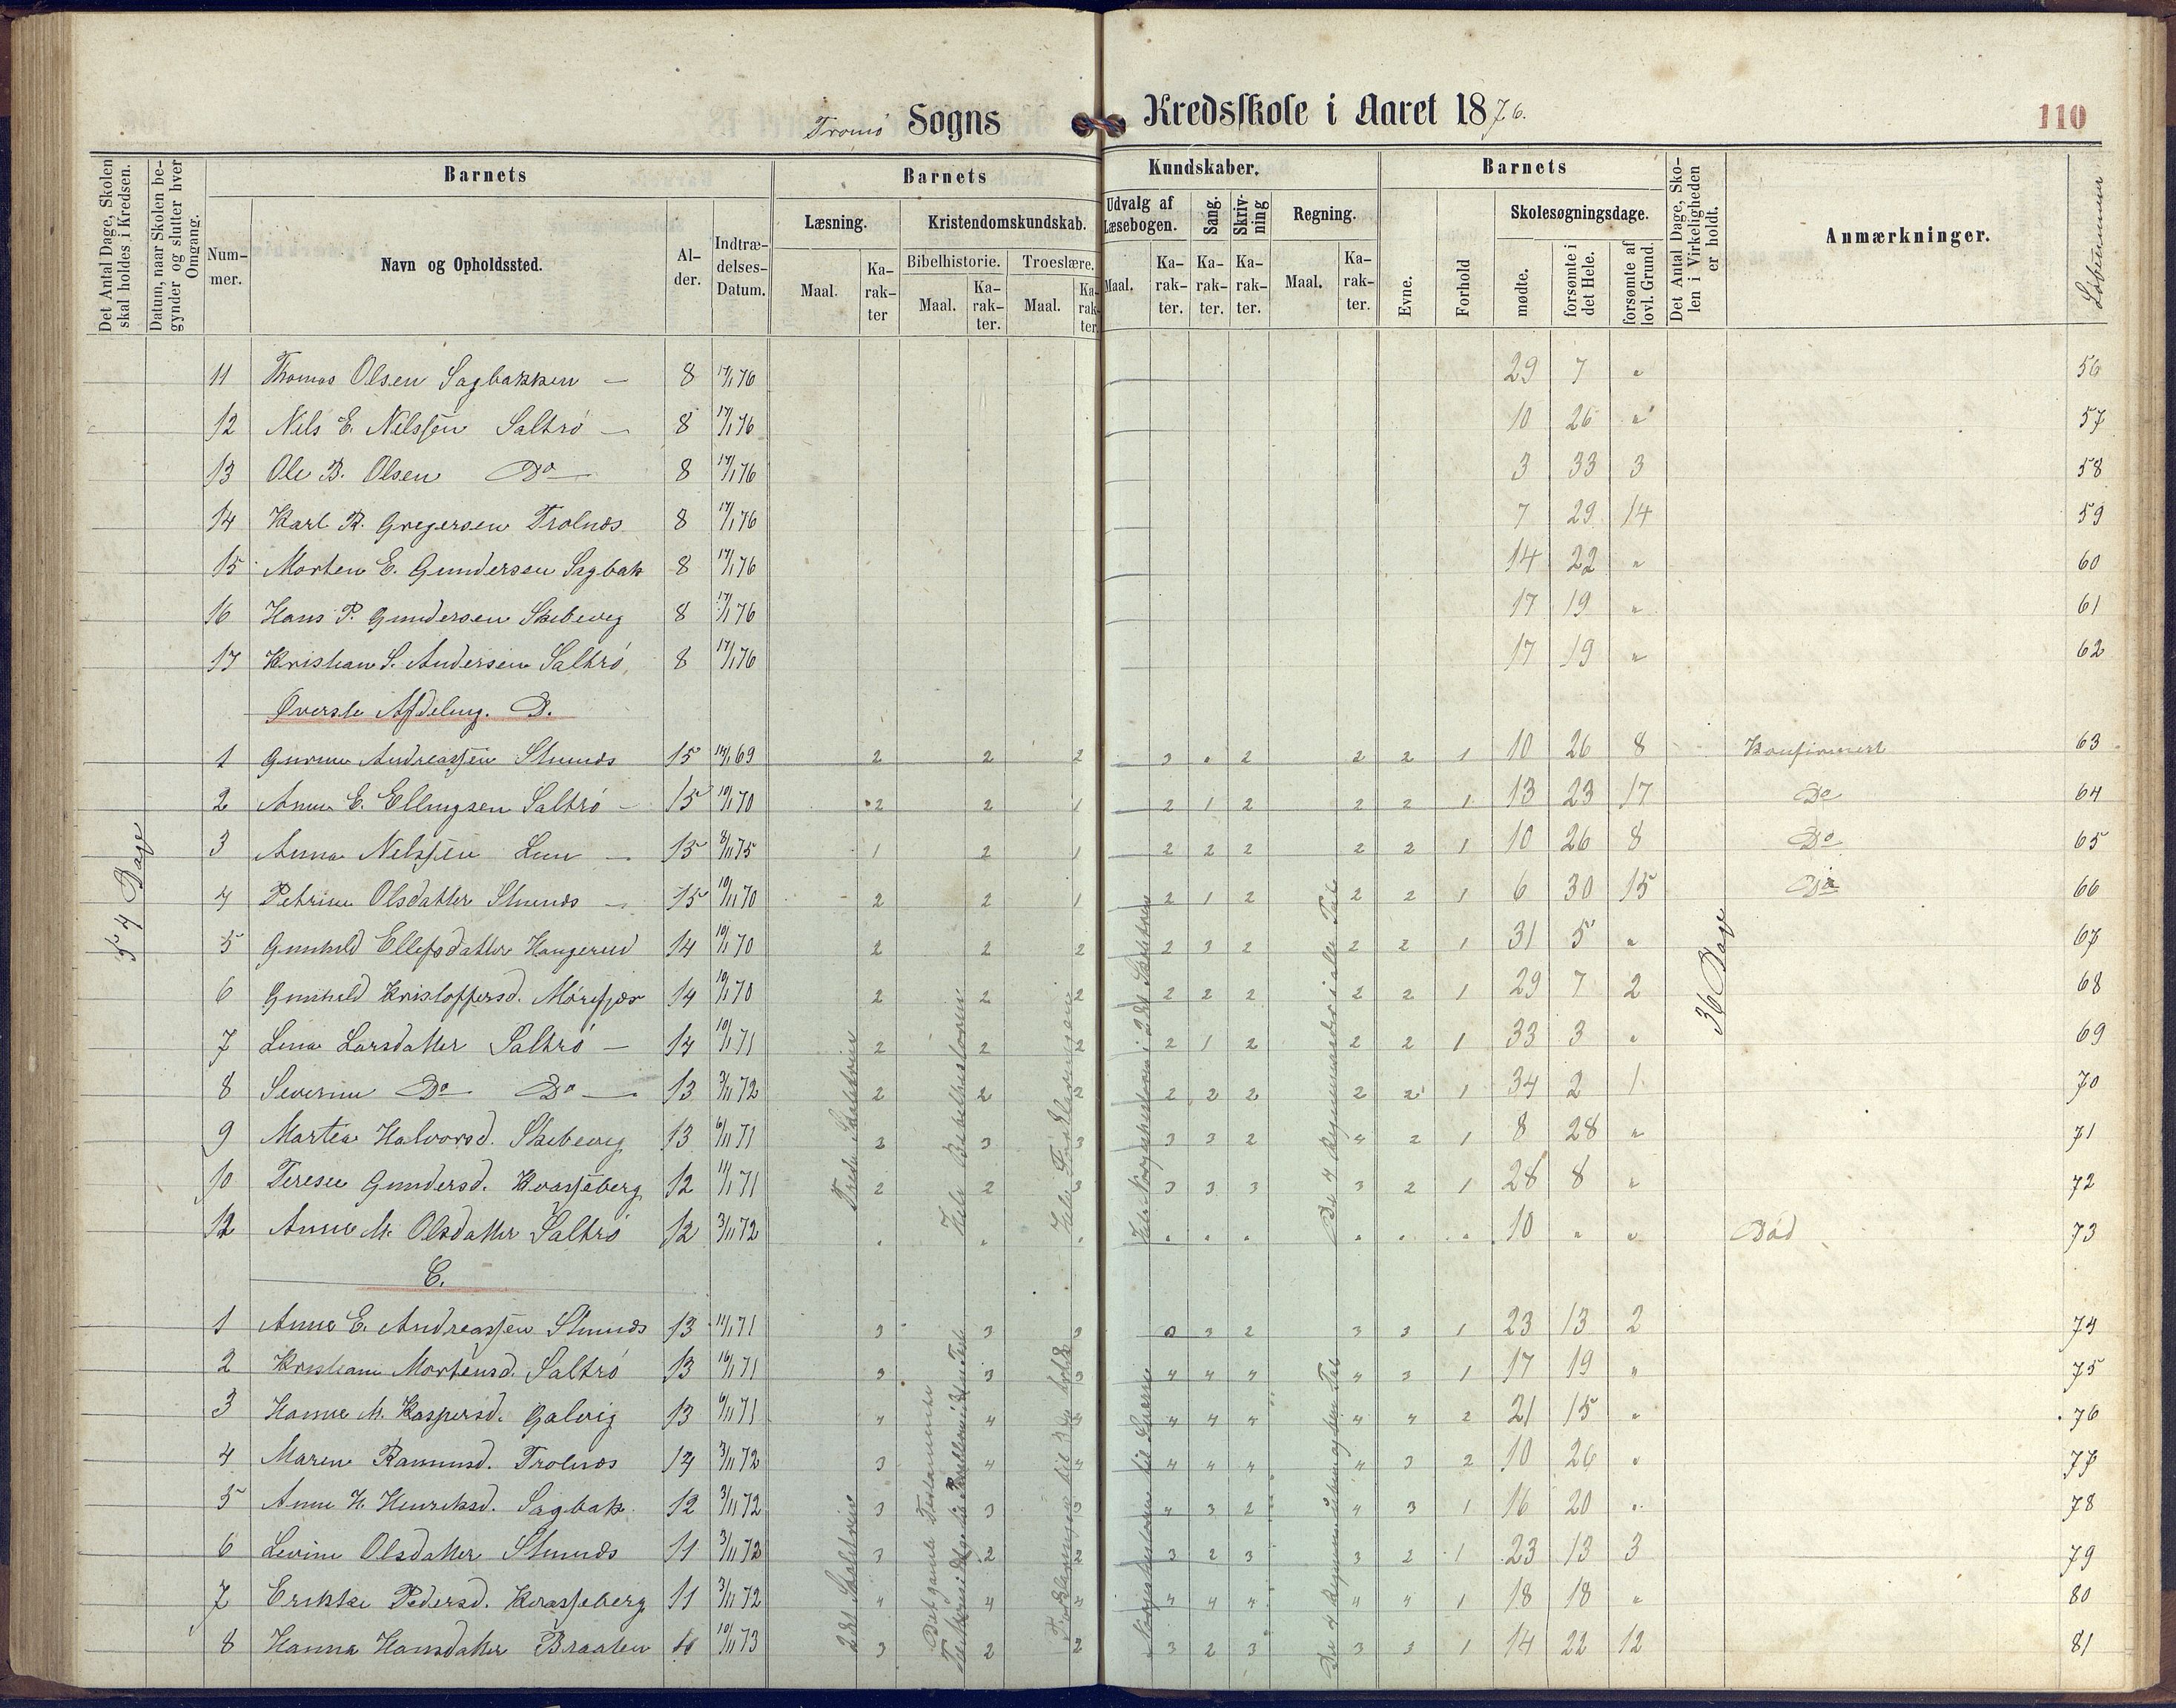 Tromö Sogns Kredsskole i Aaret 1876.
110
Det Antal Dage, Skolen skal holdes i Kredsen.
Datum, naar Skolen begynder og slutter hver Omgang.
Barnets
Nummer.
Navn og Opholdssted.
Alder.
Indtrædelses-Datum.
Barnets Kundskaber.
Læsning.
Maal.
Karakter
Kristendomskundskab.
Bibelhistorie.
Maal.
Karakter.
Troeslære.
Maal.
Karakter
Udvalg af Læsebogen.
Maal.
Karakter.
Sang.
Karakter.
Skrivning
Karakter.
Regning.
Maal.
Karakter.
Barnets
Evne.
Forhold
Skolesøgningsdage.
mødte.
forsømte i det Hele.
forsømte af lovl. Grund.
Det Antal Dage, Skolen i Virkeligheden er holdt.
Anmærkninger.
Löbenummer
11 Thomas Olsen Sagbakken — 8 17/1 76 29 7 " 56
12 Nils E. Nelssen Saltrö — 8 17/1 76 10 26 " 57
13 Ole B. Olsen Do — 8 17/1 76 3 33 3 58
14 Karl R. Gregersen Trolnæs 8 17/1 76 7 29 14 59
15 Morten E. Gundersen Sagbak 8 17/1 76 14 22 " 60
16 Hans P. Gundersen Skibevig 8 17/1 76 17 19 " 61
17 Kristian S. Andersen Saltrö 8 17/1 76 17 19 " 62
Øverste Afdeling. D.
1 Andreassen Stumnæs 15 14/1 69 2 2 2 3 . 2 2 2 1 10 26 8 Konfirmert 63
2 Anne E. Ellingsen Saltrö — 15 10/1 70 2 2 1 2 1 2 2 2 1 13 23 17 Do 64
3 Anna Nelssen Lun — 15 8/11 75 1 2 1 2 2 2 2 2 1 10 26 8 Do 65
4 Petrine Olsdatter Stumnæs — 15 10/11 70 2 2 1 2 1 2 2 2 1 6 30 15 Do 66
5 Gunhild Ellefsdatter Haugerud 14 10/1 70 2 2 2 2 3 2 2 2 1 31 5 " 67
6 Gunhild Kristoffersd. Mörefjær 14 10/1 70 2 2 2 2 2 2 2 2 1 29 7 2 68
7 Lena Larsdatter Saltrö — 14 10/1 71 2 2 2 2 1 2 2 2 1 33 3 " 69
8 Severine Do Do — 13 3/11 72 2 2 2 2 2 2 2 2 1 34 2 1 70
9 Martea Halvorsd. Skibevig 13 6/11 71 2 3 3 3 3 2 4 2 1 8 28 " 71
10 Terese Gundersd. Kvasseberg 12 11/1 71 2 2 3 3 3 3 3 2 1 28 8 " 72
12 Anne M. Olsdatter Saltrö 12 3/11 72 . . . . . . . . . 10 " " Död 73
C.
1 Anne E. Andreassen Stumnæs 13 11/1 71 3 3 3 3 3 2 3 3 1 23 13 2 74
2 Kristiane Mortensd. Saltrö 13 16/1 71 3 3 3 4 4 4 4 3 1 17 19 " 75
3 Hanne M. Kaspersd. Galvig 13 6/11 71 4 4 4 4 4 4 4 4 2 21 15 " 76
4 Maren Rasmusd. Trolnæs 14 3/11 72 3 4 4 4 4 4 4 3 2 10 26 " 77
5 Anne K. Henriksd. Sagbak 12 3/11 72 3 3 3 4 3 2 4 3 1 16 20 " 78
6 Levine Olsdatter Stumnæs 11 3/11 72 3 2 2 3 2 3 3 2 1 23 13 3 79
7 Erikke Pedersd. Kvasseberg 11 3/11 72 4 4 4 4 4 4 4 4 1 18 18 " 80
8 Hanna Hansdatter Braaten 11 10/11 73 3 2 2 3 2 3 3 3 1 14 22 12 81
54 Dage
36 Dage
Tredie Skoletrin
Hele Bibelhistorien
Hele Forklaringen
Hele Norgeshistorien i 2det Skoletrin
De 4 Regningsarter i hele Tal
2det Skoletrin
Det gamle Testamente
Forklaringen til 3die
Norgeshistorien til
De 4